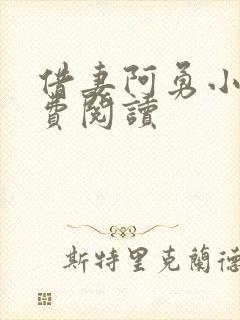 借妻阿勇小
費閱讀
斯特里克蘭德